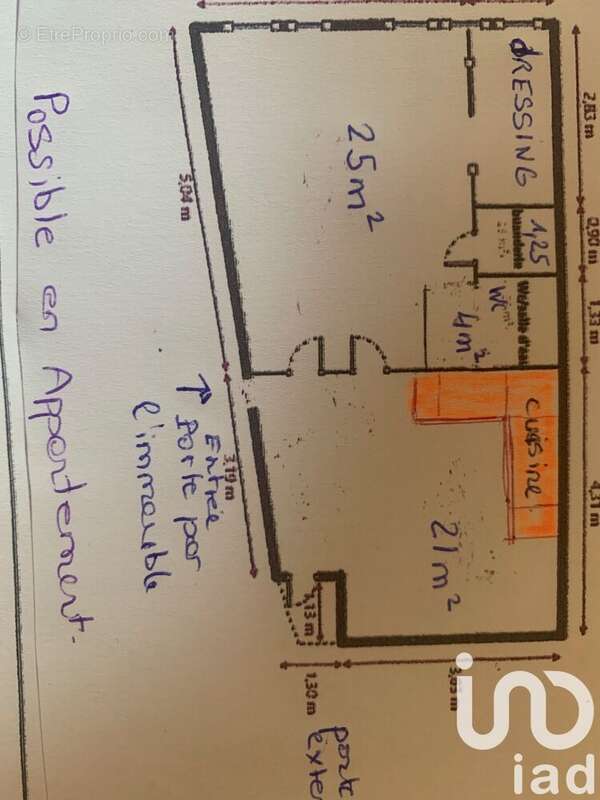 © EtreProprio.com
DRESSING
2,83 m
25 m²
1,25
buanderie
0,90 m
WC
Wc/salle d'eau
1,33 m
4 m²
5,04 m
CUISINE
4,31 m
21 m²
3,19 m
1,13 m
1,30 m
3,03 m
↑ Entrée
Porte par
l'immeuble
porte
exter
Possible en Appartement.
iad